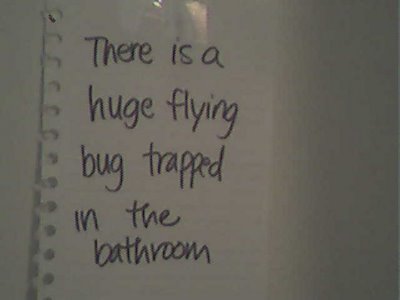 There is a
huge flying
bug trapped
in the
bathroom